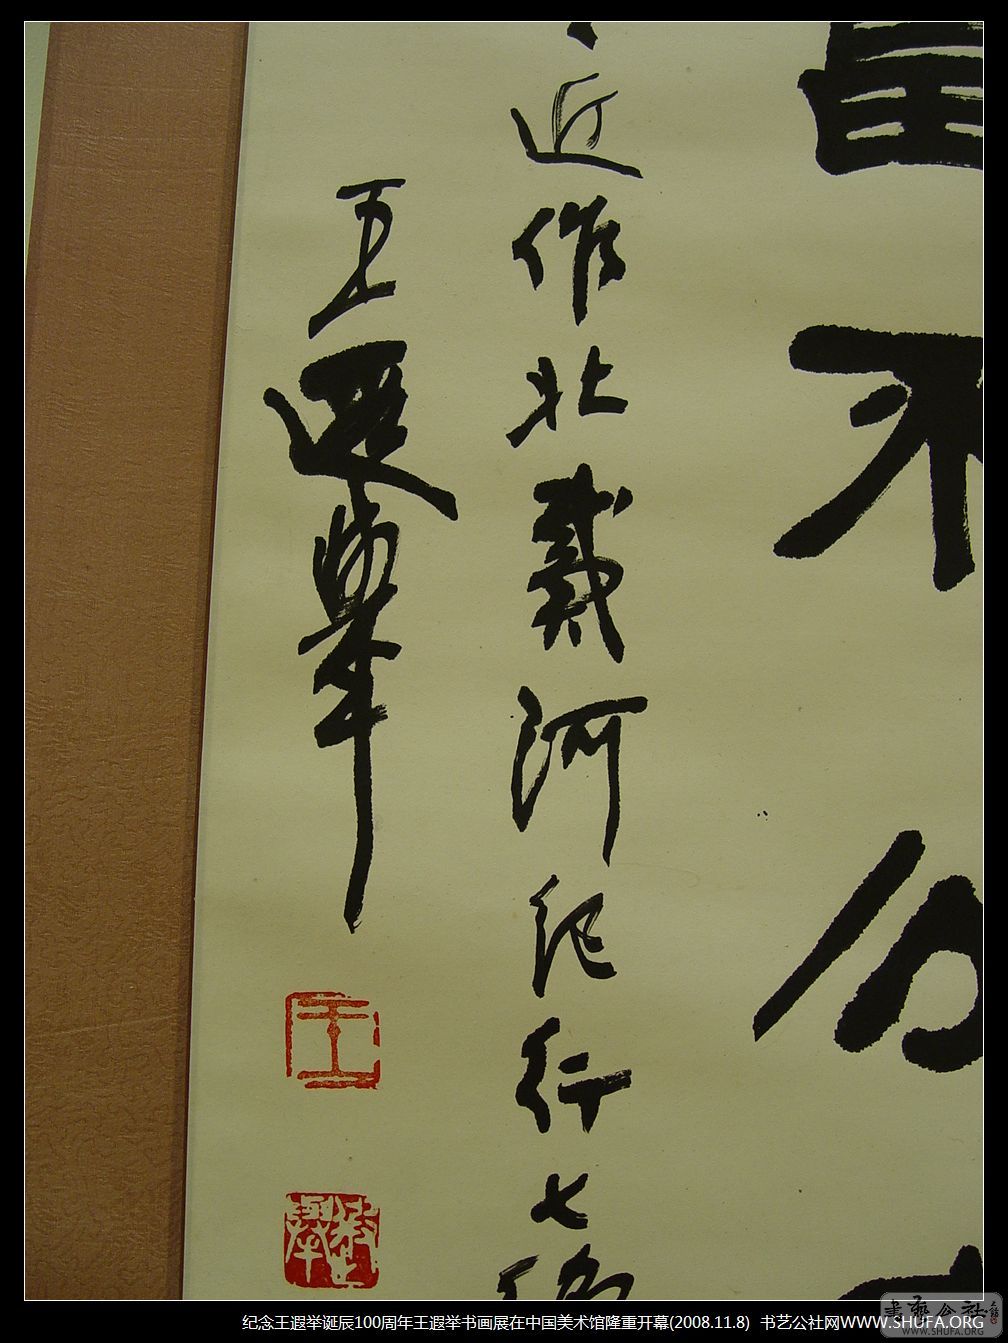 不
公
近作北戴河纪行七
王遐舉
王
纪念王遐举诞辰100周年王遐举书画展在中国美术馆隆重开幕(2008.11.8) 书艺公社网WWW.SHUFA.ORG
书艺公社
WWW.SHUFA.ORG